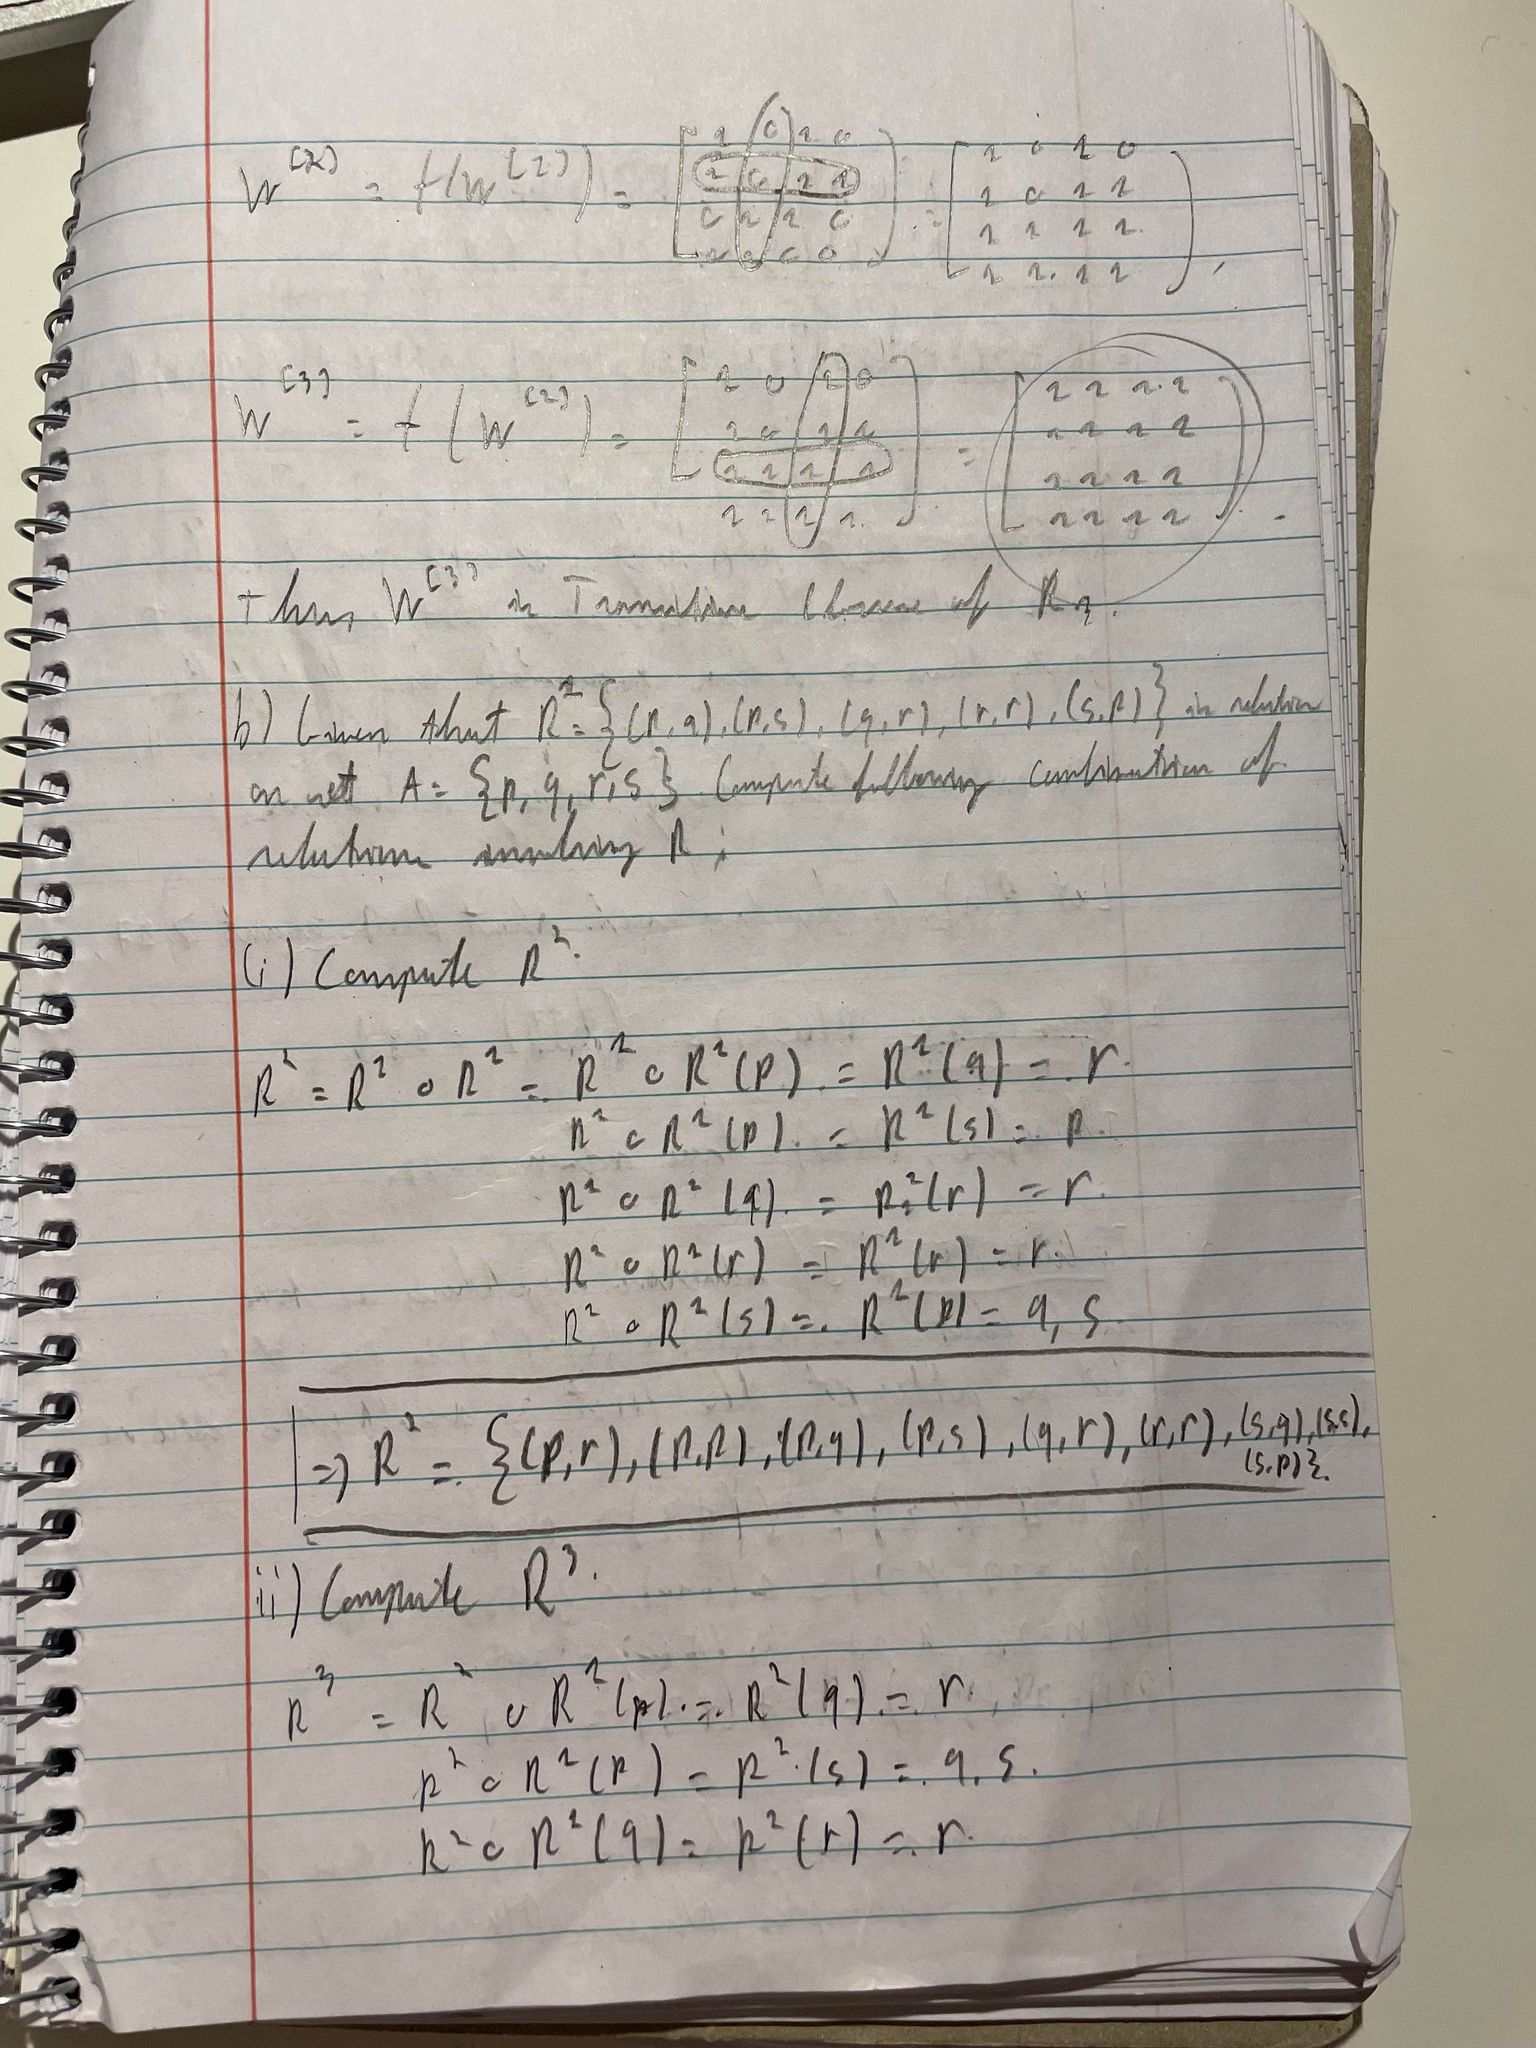 W^[2] = f(W^[1]) = [1 0 1 0; 1 0 1 1; 0 1 1 0; 1 1 0 0] = [1 0 1 0; 1 0 1 1; 1 1 1 1; 1 1 1 1],
W^[3] = f(W^[2]) = [1 0 1 0; 1 0 1 0; 1 1 1 1; 1 1 1 1] = [1 1 1 1; 1 1 1 1; 1 1 1 1; 1 1 1 1].
thus W^[3] is Transitive Closure of R1.
b) Given that R^1 = {(p,q), (p,s), (q,r), (r,r), (s,p)} is relation
on set A = {p, q, r, s}. Compute following combination of
relations involving R;
(i) Compute R^2.
R^2 = R^1 o R^1 = R^1 o R^1(p) = R^1(q) = r.
R^1 o R^1(p) = R^1(s) = p.
R^1 o R^1(q) = R^1(r) = r.
R^1 o R^1(r) = R^1(r) = r.
R^1 o R^1(s) = R^1(p) = q, s
=> R^2 = {(p,r), (p,p), (p,q), (p,s), (q,r), (r,r), (s,q), (s,s),
(s,p)}.
ii) Compute R^3.
R^3 = R^2 o R^1(p) = R^2(q) = r.
R^2 o R^1(p) = R^2(s) = q, s.
R^2 o R^1(q) = R^2(r) = r.